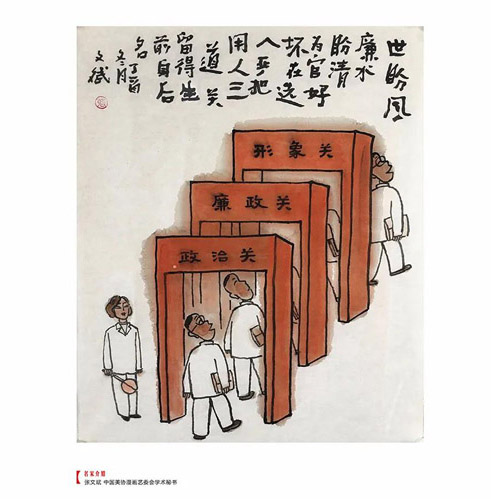 世盼风
廉水
盼清
为官好
坏在选
人严把
用人三
道关
留得生
前身后
名
丁酉
冬月
文斌
形象关
廉政关
政治关
名家介绍
张文斌 中国美协漫画艺委会学术秘书